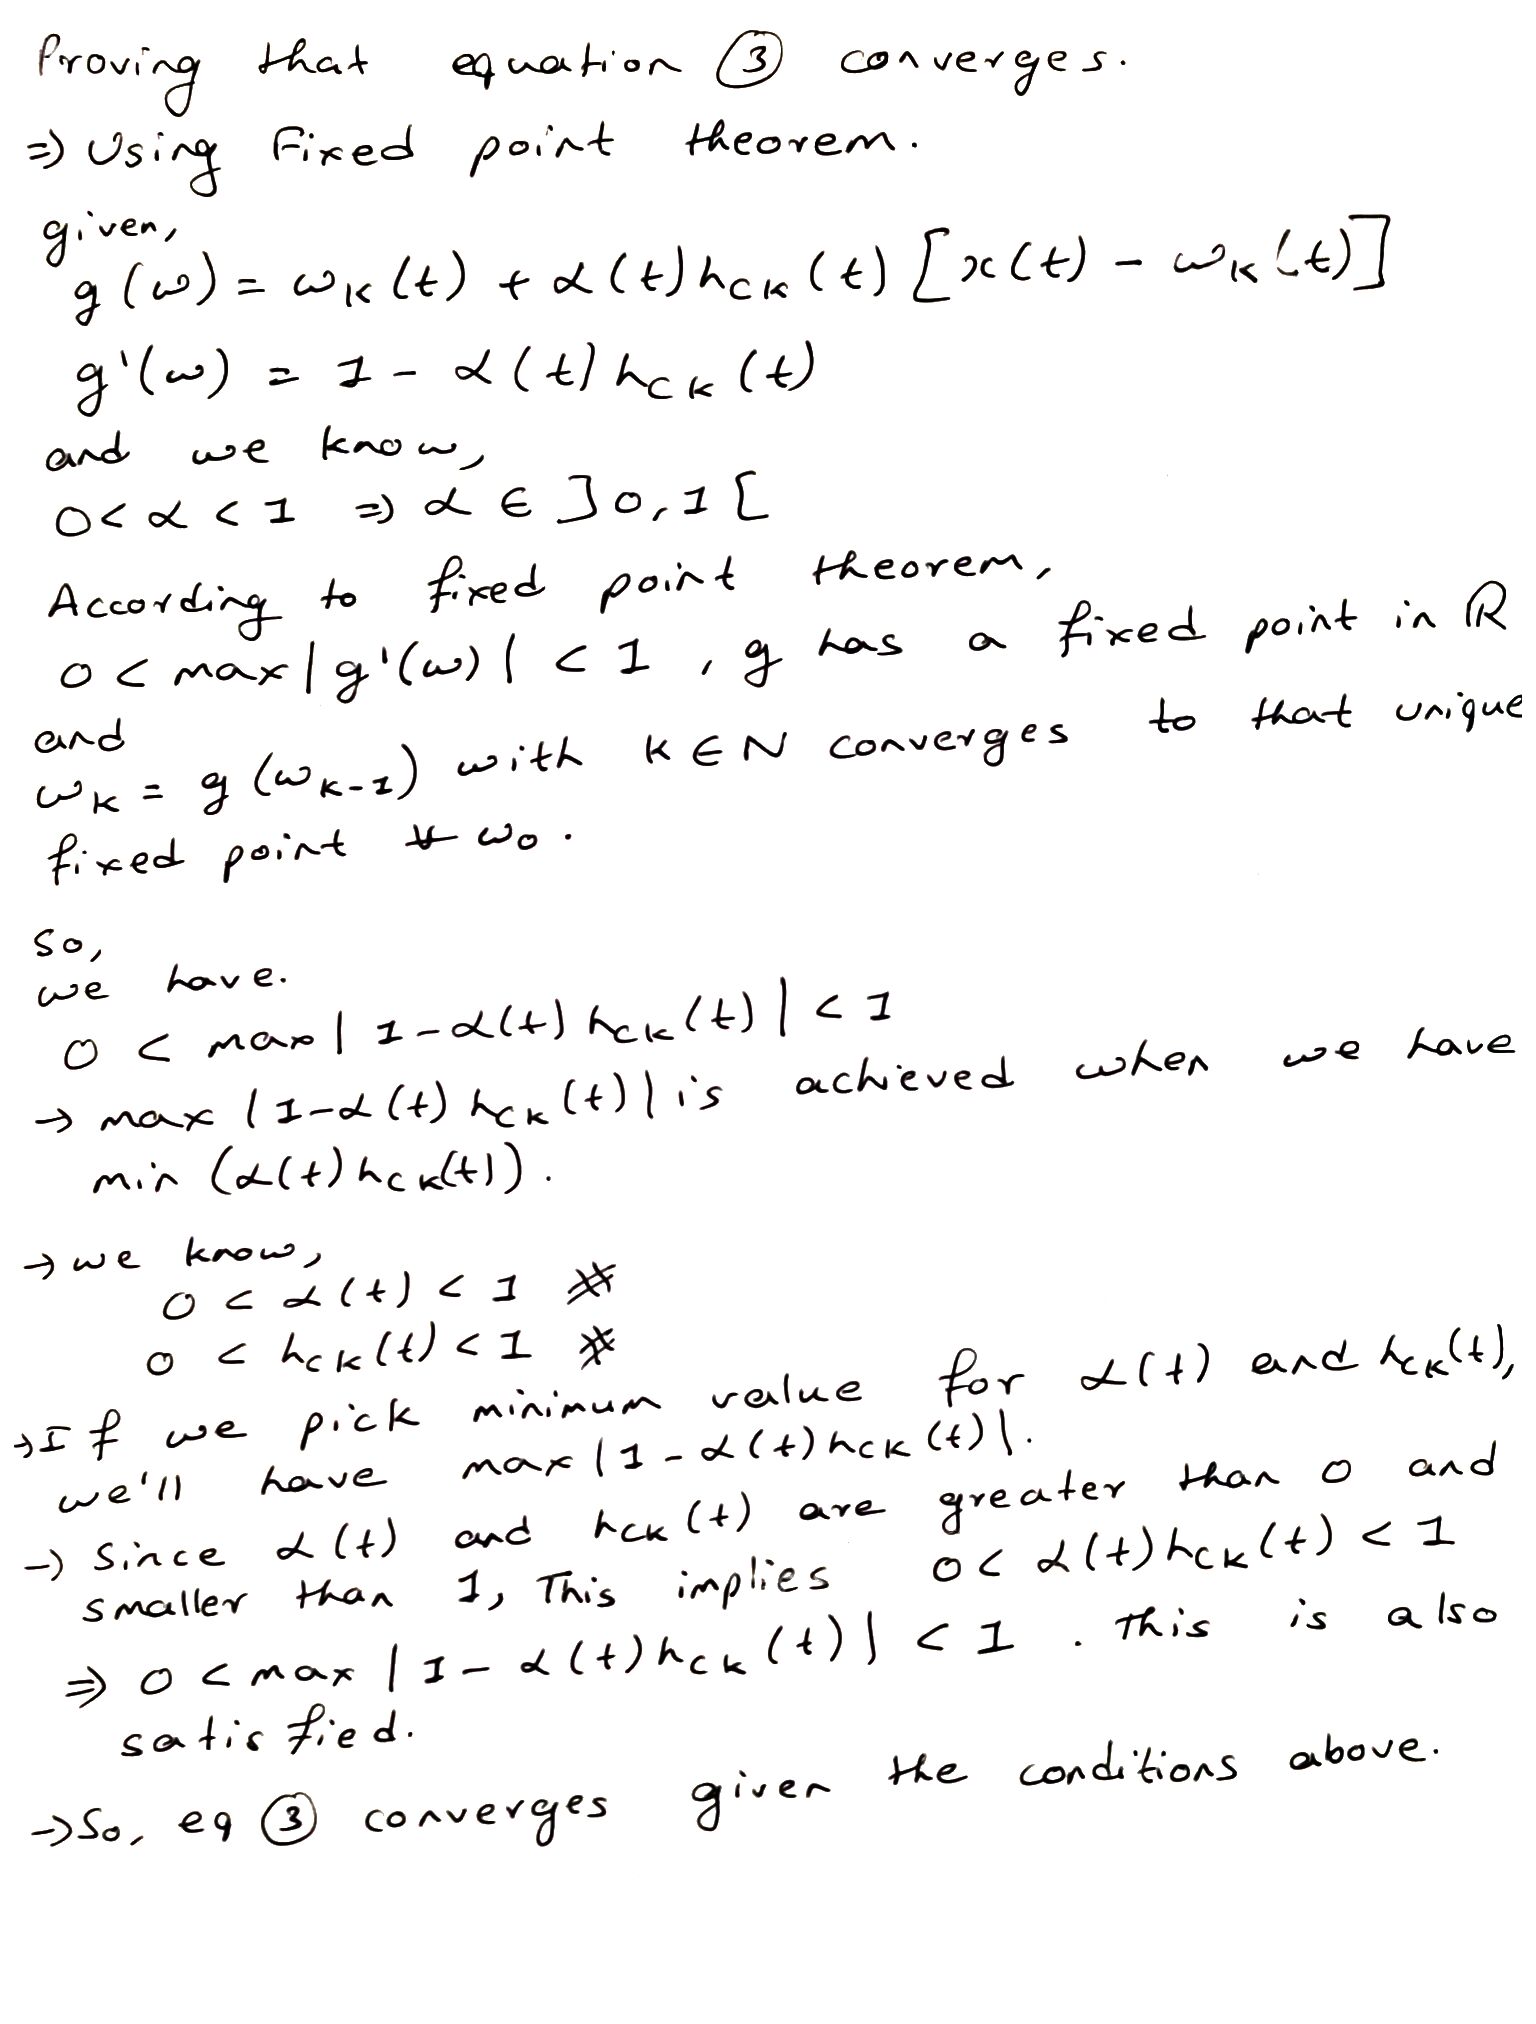 Proving that equation ③ converges.
⇒ Using Fixed point theorem.
given,
g(ω) = ωK(t) + α(t)hCK(t)[x(t) - ωK(t)]
g'(ω) = 1 - α(t)hCK(t)
and we know,
0<α<1 ⇒ α ∈ ]0,1[
According to fixed point theorem,
0 < max|g'(ω)| < 1, g has a fixed point in ℝ
and
ωK = g(ωK-1) with K∈N converges to that unique
fixed point ∀ ω0.
So,
we have.
0 < max|1-α(t)hCK(t)| < 1
→ max|1-α(t)hCK(t)| is achieved when we have
min(α(t)hCK(t)).
→ we know,
0 < α(t) < 1 *
0 < hCK(t) < 1 *
→ If we pick minimum value for α(t) and hCK(t),
we'll have max|1-α(t)hCK(t)|.
→ Since α(t) and hCK(t) are greater than 0 and
smaller than 1, This implies 0< α(t)hCK(t) < 1
⇒ 0 < max|1-α(t)hCK(t)| < 1. This is also
satisfied.
→ So, eq ③ converges given the conditions above.